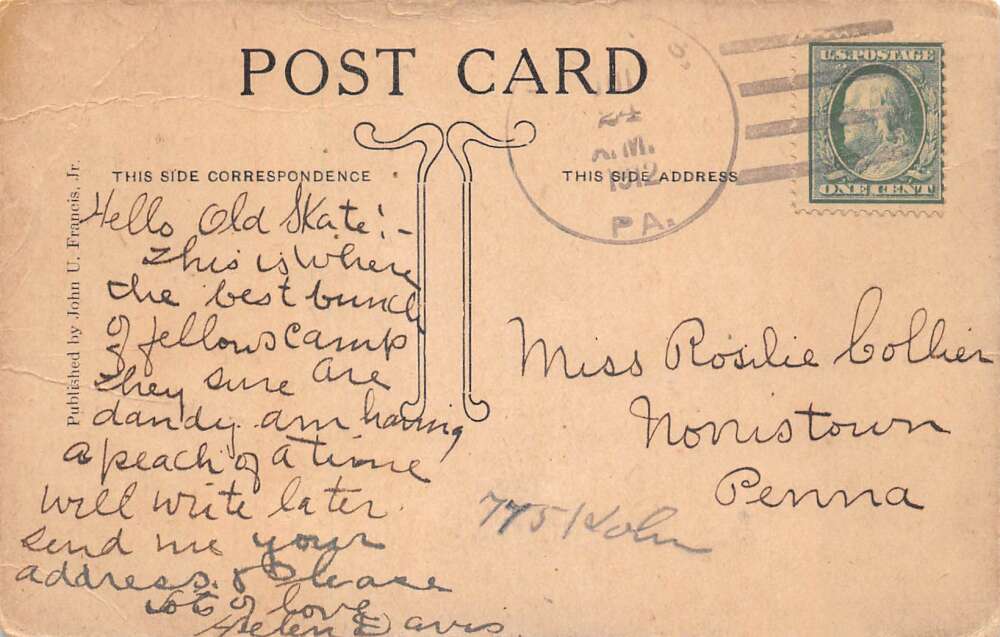 POST CARD
THIS SIDE CORRESPONDENCE
THIS SIDE ADDRESS
Published by John U. Francis, Jr.
24
A.M.
1912
PA.
U.S. POSTAGE
ONE CENT
Hello Old Skate!-
This is Where
the best bunch
of fellows camp
they sure are
dandy am having
a peach of a time
will write later
send me your
address. Please
Lots of love
Helen Davis
Miss Rosilie Collier
Norristown
Penna
775 Kohn